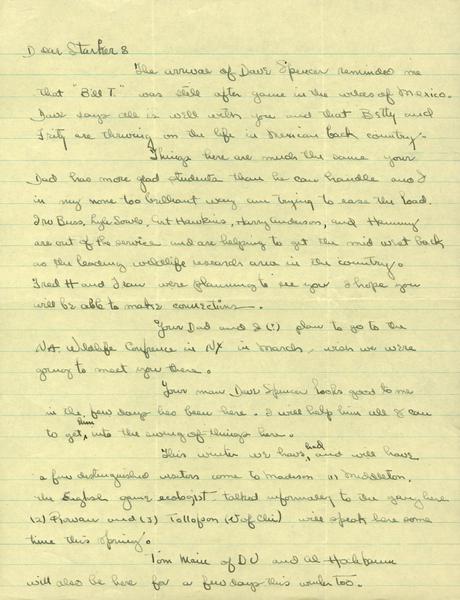 Dear Starker:
The arrival of Dave Spencer reminded me
that "Bill T." was still after game in the wilds of Mexico.
Dave says all is well with you and that Betty and
Fritz are thriving on the life in Mexican back country.
Things here are much the same your
Dad has more grad students than he can handle and I
in my none too brilliant way am trying to ease the load.
Irv Buss, Lyle Sowls, Art Hawkins, Harry Anderson, and Hammy
are out of the service and are helping to get the mid west back
as the leading wildlife research area in the country.
Fred H and Fran were planning to see you I hope you
will be able to make connections.
Your Dad and I (?) plan to go to the
NA. Wildlife Confrence in NY in March, wish we were
going to meet you there.
Your man Dave Spencer looks good to me
in the few days has been here. I will help him all I can
to get him into the swing of things here.
This winter we have had and will have
a few distinguished visitors come to Madison (1) Middleton,
the English game ecologist talked informally to the gang here
(2) Rowan and (3) Tollefson (U of Chi) will speak here some
time this spring.
Tom Main of DU and Al Hochbaum
will also be here for a few days this winter too.